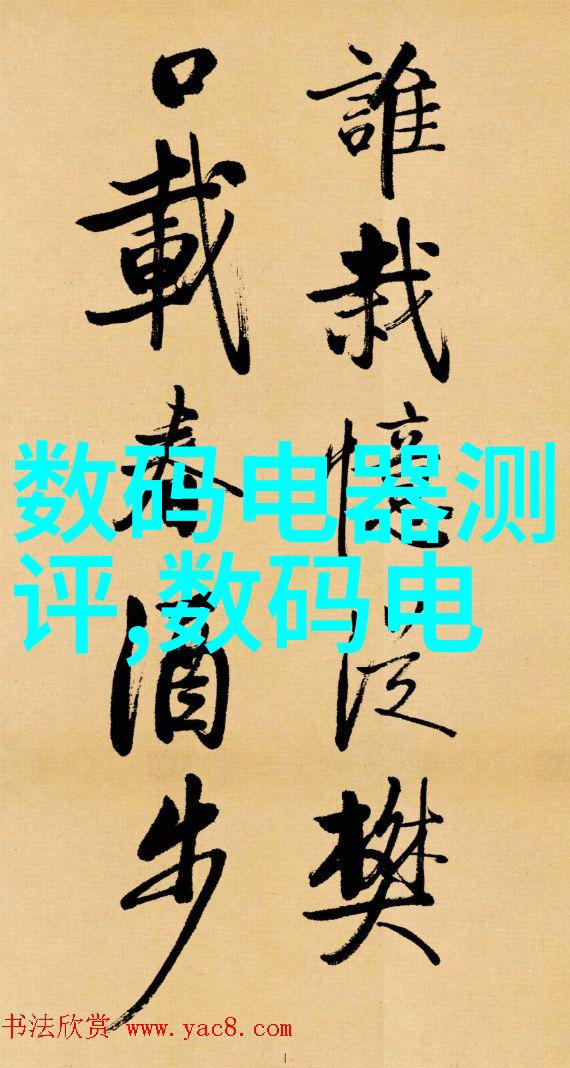 誰栽憶從樊
口載春酒步
数码电器测
评,数码电
书法欣赏 www.yac8.com